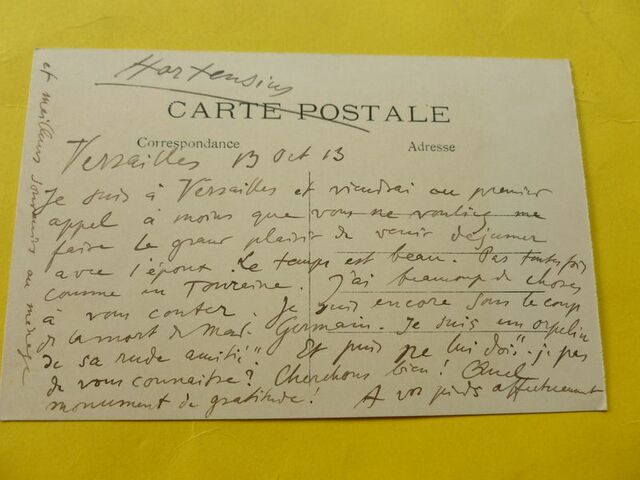 Hortensius
CARTE POSTALE
Correspondance
Adresse
Versailles 13 Oct 13
Je suis à Versailles et viendrai au premier
appel à moins que vous ne vouliez me
faire le grand plaisir de venir déjeuner
avec l'époux. Le temps est beau. Pas toutefois
comme en Touraine. J'ai beaucoup de choses
à vous conter. Je suis encore sous le coup
de la mort de Mad. Germain. Je suis un orphelin
de sa rude amitié! Et puis ne lui dois-je pas
de vous connaître? Cherchons bien! Quel
monument de gratitude! A vos pieds affectueusement
et meilleurs souvenirs au ménage